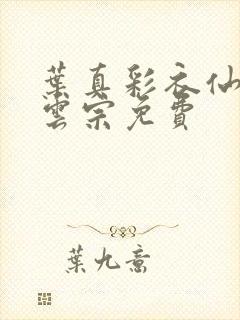 葉真彩衣仙
雲宗免費
葉九喬